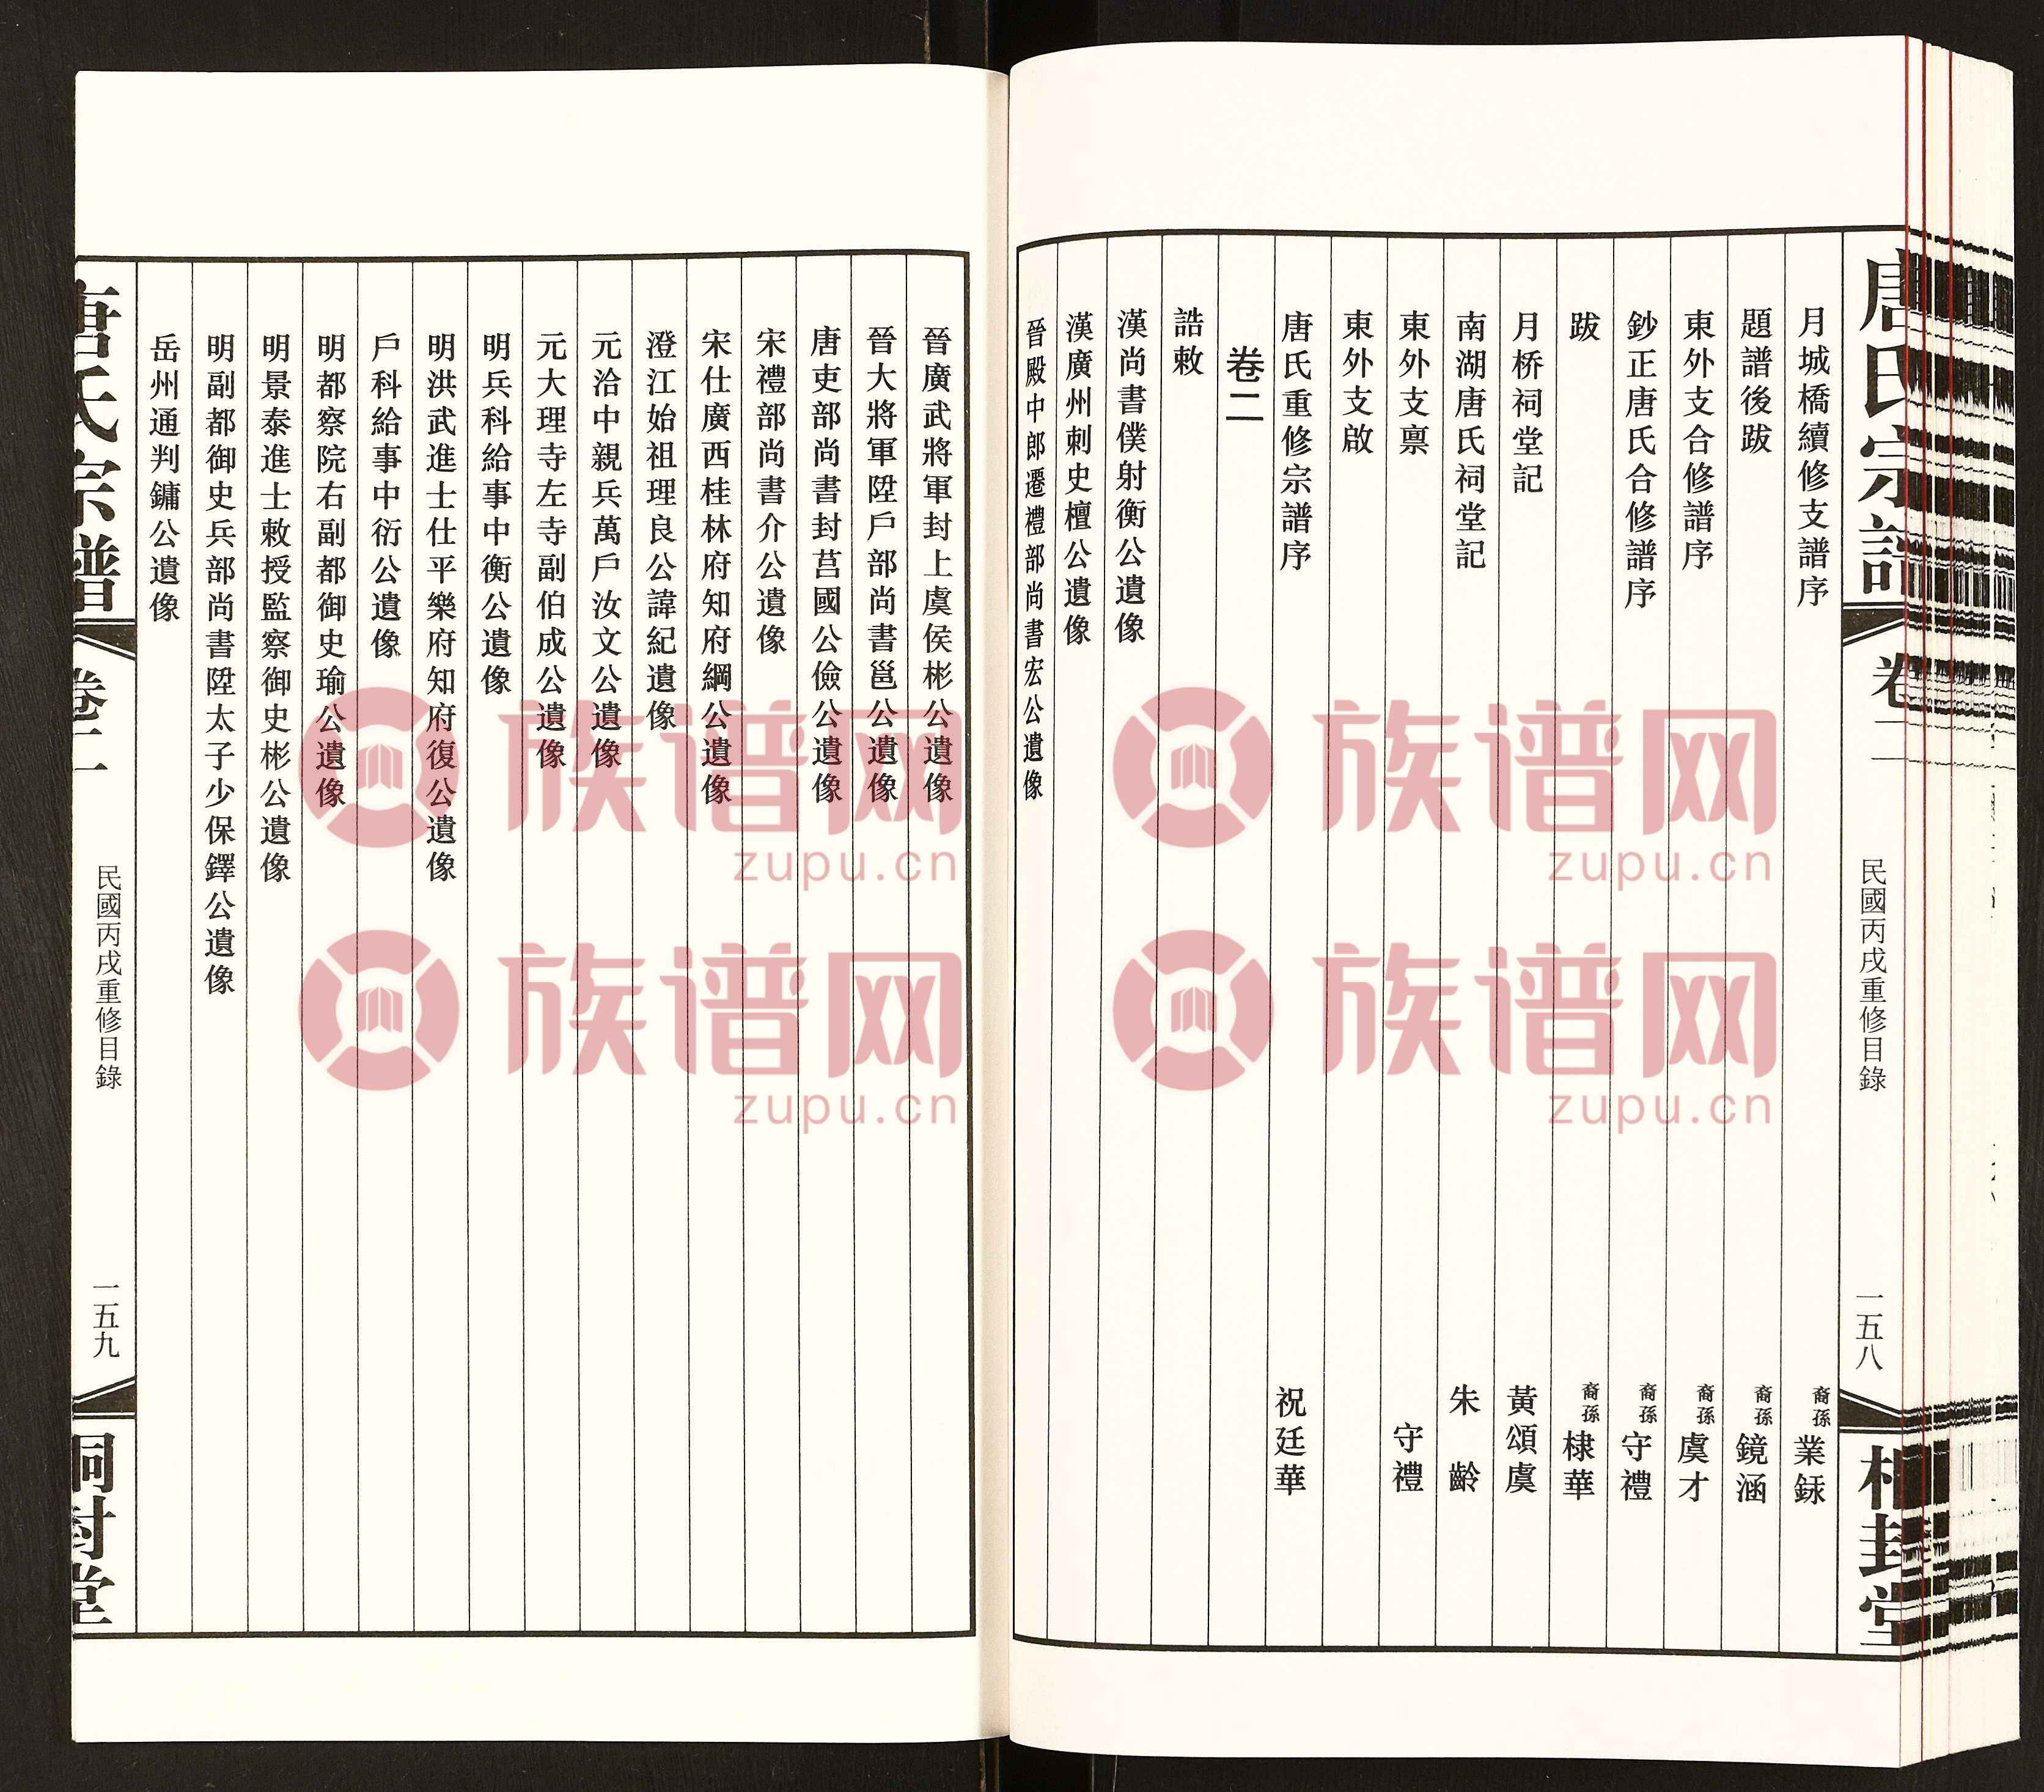 唐氏宗譜
卷二
民國丙戌重修目錄
一五八
桐封堂
月城橋續修支譜序 裔孫 業銶
題譜後跋 裔孫 鏡涵
東外支合修譜序 裔孫 虞才
鈔正唐氏合修譜序 裔孫 守禮
跋 裔孫 棣華
月桥祠堂記 黃頌虞
南湖唐氏祠堂記 朱齡
東外支禀 守禮
東外支啟
唐氏重修宗譜序 祝廷華
卷二
誥敕
漢尚書僕射衡公遺像
漢廣州刺史檀公遺像
晉殿中郎遷禮部尚書宏公遺像
晉廣武將軍封上虞侯彬公遺像
晉大將軍陞戶部尚書邕公遺像
唐吏部尚書封莒國公儉公遺像
宋禮部尚書介公遺像
宋仕廣西桂林府知府綱公遺像
澄江始祖理良公諱紀遺像
元洽中親兵萬戶汝文公遺像
元大理寺左寺副伯成公遺像
明兵科給事中衡公遺像
明洪武進士仕平樂府知府復公遺像
戶科給事中衍公遺像
明都察院右副都御史瑜公遺像
明景泰進士敕授監察御史彬公遺像
明副都御史兵部尚書陞太子少保鐸公遺像
岳州通判鏞公遺像
唐氏宗譜
卷二
民國丙戌重修目錄
一五九
桐封堂
族谱网
zupu.cn
族谱网
zupu.cn
族谱网
zupu.cn
族谱网
zupu.cn